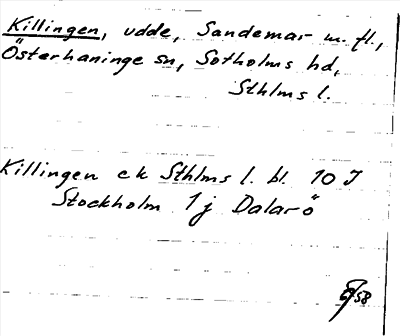 Killingen, udde, Sandemar m. fl.,
Österhaninge sn, Sotholms hd,
Sthlms l.
Killingen ek Sthlms l. bl. 10 J
Stockholm 1j Dalarö
/58